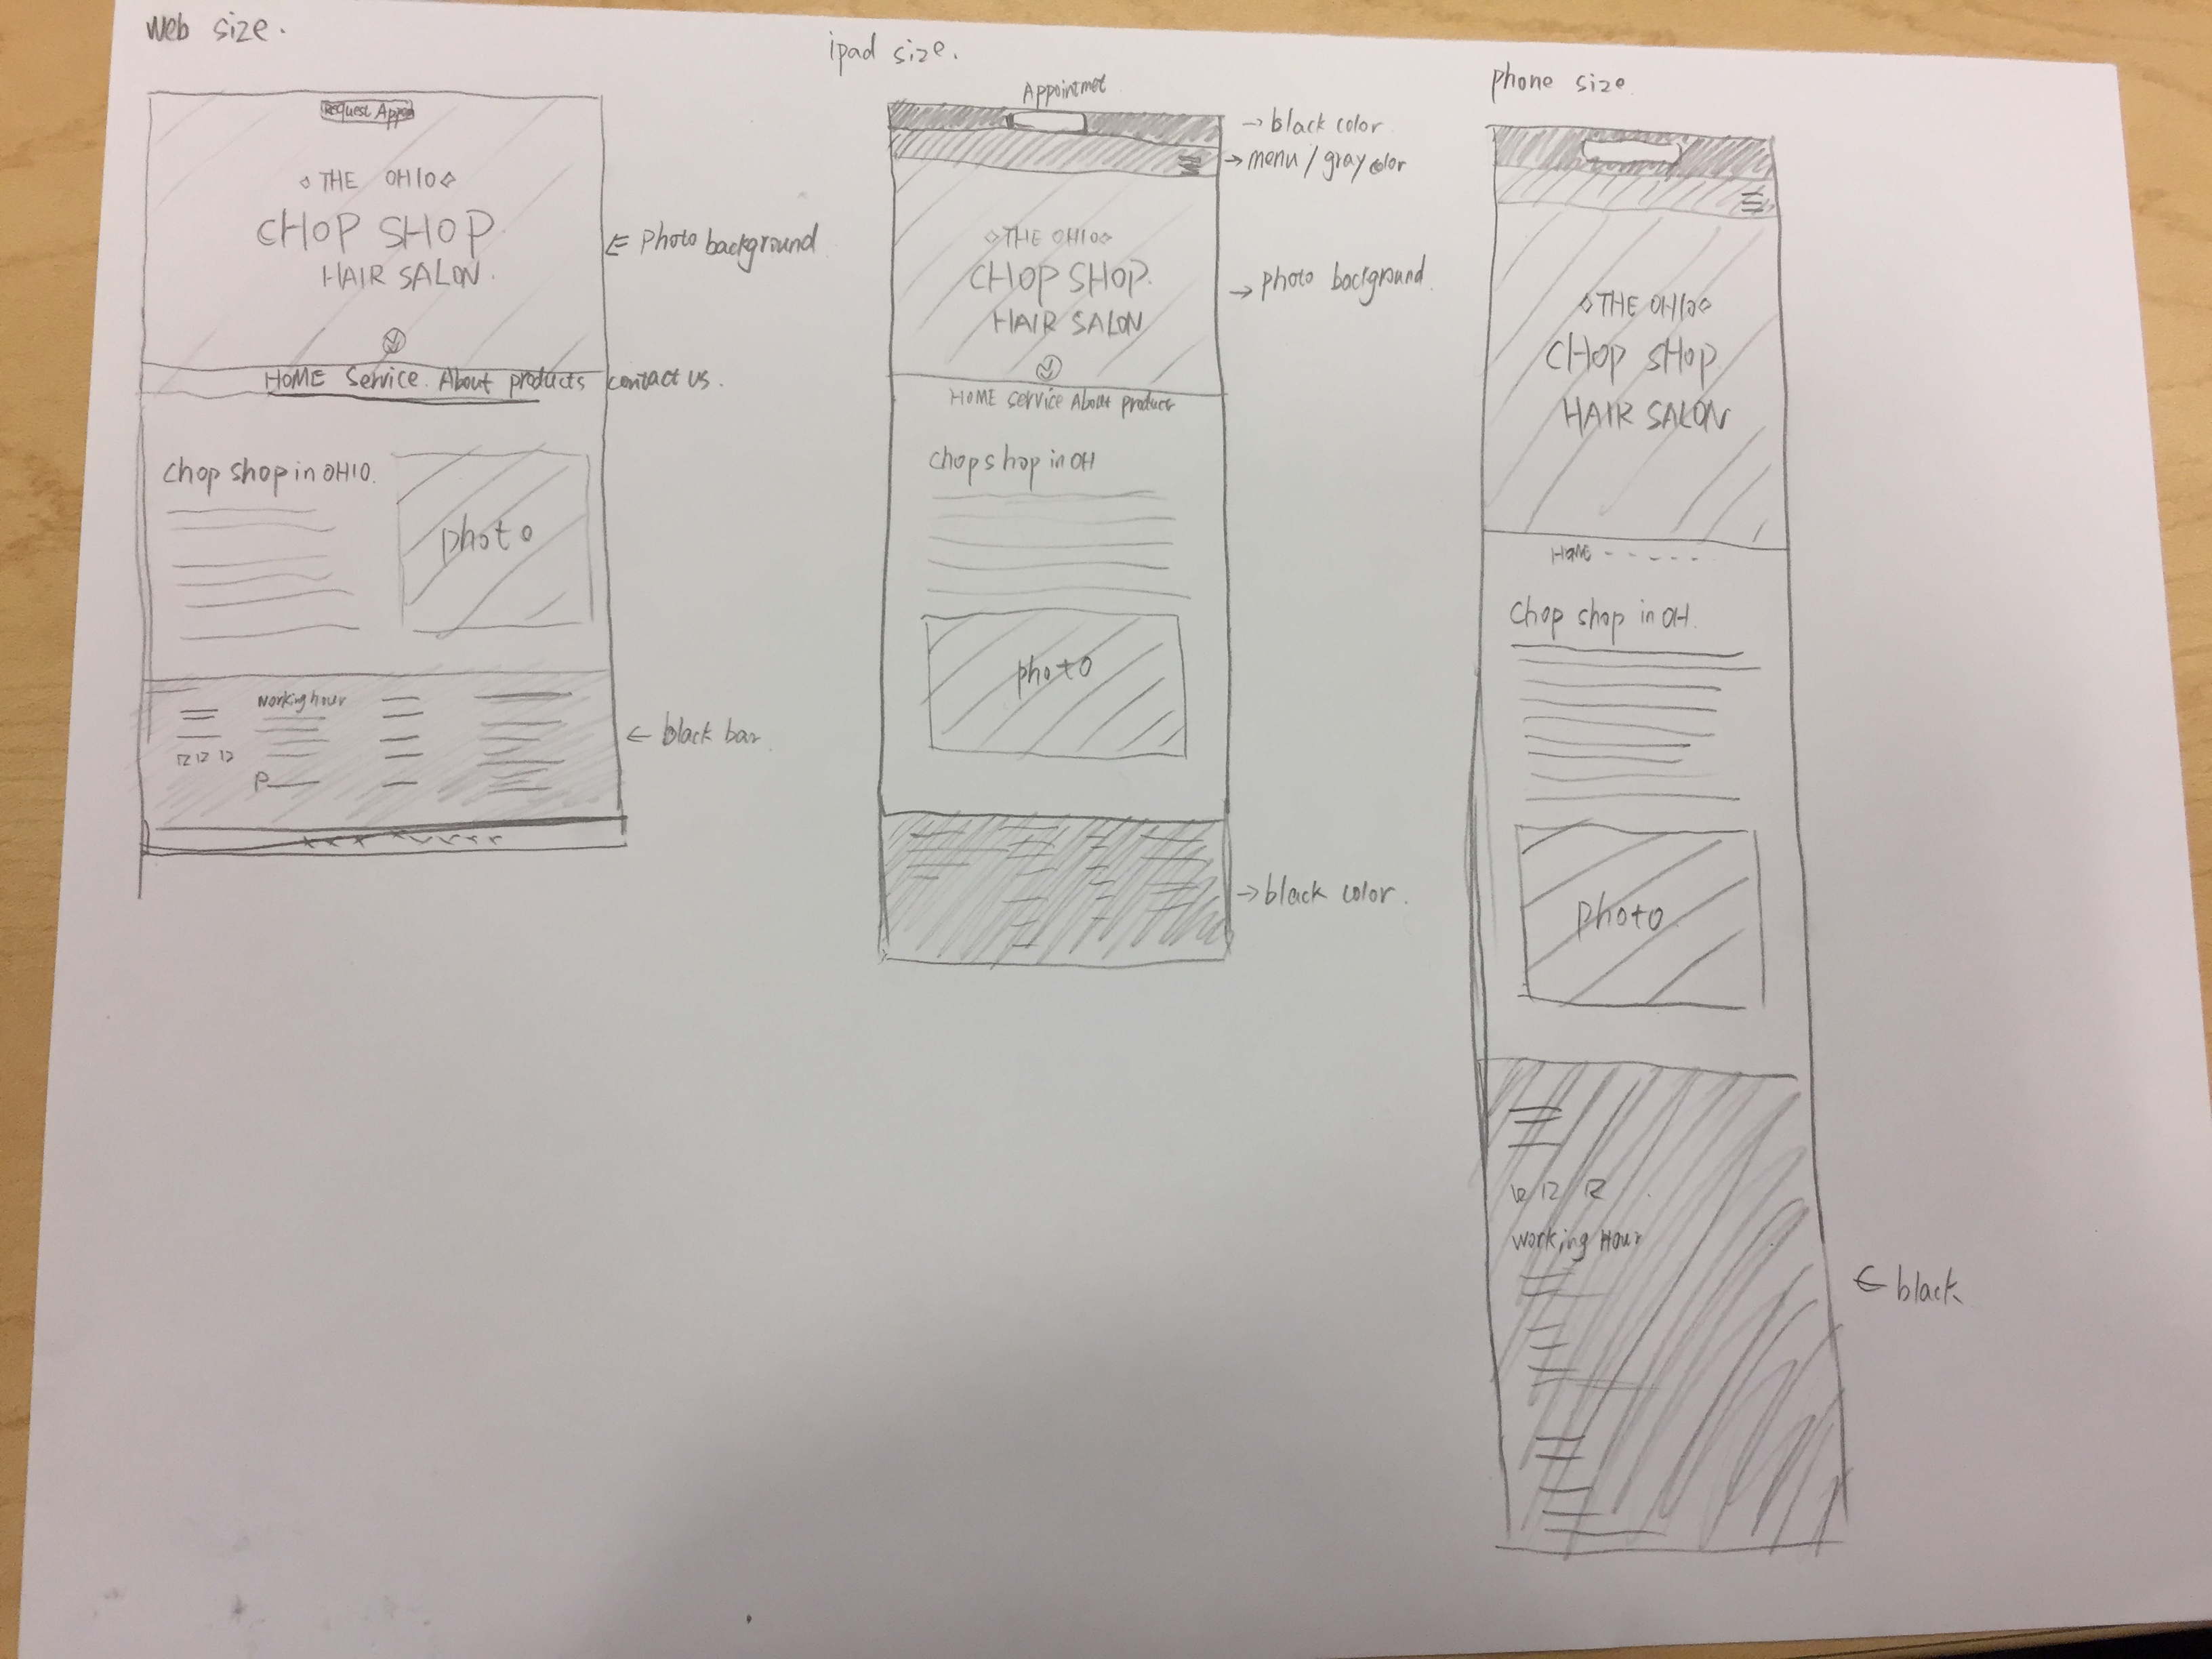 web size.
Request Appon
◇ THE OHIO ◇
CHOP SHOP
HAIR SALON.
photo background
HOME Service. About products contact us.
Chop shop in OHIO.
photo
Working hour
P
black bar
ipad size.
Appointmet
black color
menu / gray color
◇ THE OHIO ◇
CHOP SHOP.
HAIR SALON
photo background.
HOME service About product
Chop shop in OH
photo
black color.
phone size.
◇ THE OHIO ◇
CHOP SHOP
HAIR SALON
HOME - - - - -
Chop shop in OH.
photo
Working Hour
black